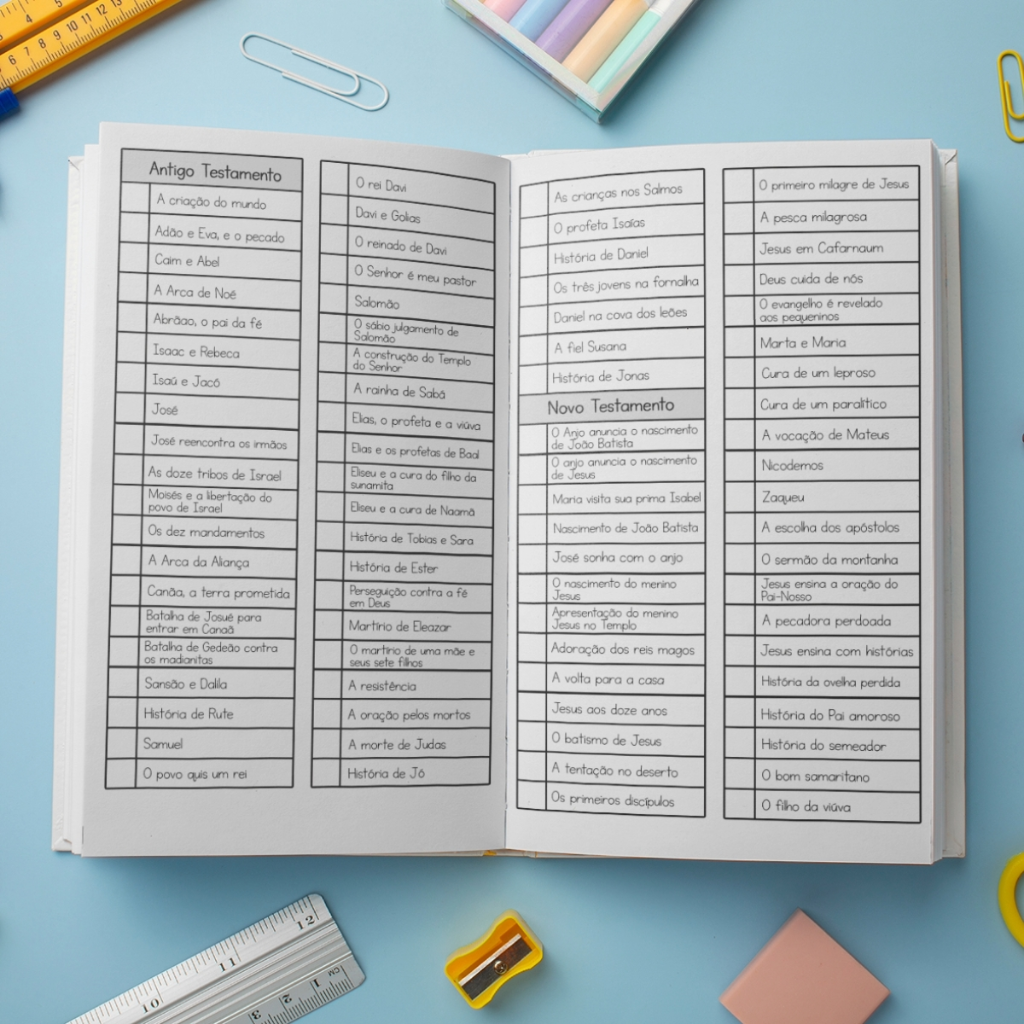 Antigo Testamento
A criação do mundo
Adão e Eva, e o pecado
Caim e Abel
A Arca de Noé
Abrãao, o pai da fé
Isaac e Rebeca
Isaú e Jacó
José
José reencontra os irmãos
As doze tribos de Israel
Moisés e a libertação do
povo de Israel
Os dez mandamentos
A Arca da Aliança
Canãa, a terra prometida
Batalha de Josué para
entrar em Canaã
Batalha de Gedeão contra
os madianitas
Sansão e Dalila
História de Rute
Samuel
O povo quis um rei
O rei Davi
Davi e Golias
O reinado de Davi
O Senhor é meu pastor
Salomão
O sábio julgamento de
Salomão
A construção do Templo
do Senhor
A rainha de Sabá
Elias, o profeta e a viúva
Elias e os profetas de Baal
Eliseu e a cura do filho da
sunamita
Eliseu e a cura de Naamã
História de Tobias e Sara
História de Ester
Perseguição contra a fé
em Deus
Martírio de Eleazar
O martírio de uma mãe e
seus sete filhos
A resistência
A oração pelos mortos
A morte de Judas
História de Jó
As crianças nos Salmos
O profeta Isaías
História de Daniel
Os três jovens na fornalha
Daniel na cova dos leões
A fiel Susana
História de Jonas
Novo Testamento
O Anjo anuncia o nascimento
de João Batista
O anjo anuncia o nascimento
de Jesus
Maria visita sua prima Isabel
Nascimento de João Batista
José sonha com o anjo
O nascimento do menino
Jesus
Apresentação do menino
Jesus no Templo
Adoração dos reis magos
A volta para a casa
Jesus aos doze anos
O batismo de Jesus
A tentação no deserto
Os primeiros discípulos
O primeiro milagre de Jesus
A pesca milagrosa
Jesus em Cafarnaum
Deus cuida de nós
O evangelho é revelado
aos pequeninos
Marta e Maria
Cura de um leproso
Cura de um paralítico
A vocação de Mateus
Nicodemos
Zaqueu
A escolha dos apóstolos
O sermão da montanha
Jesus ensina a oração do
Pai-Nosso
A pecadora perdoada
Jesus ensina com histórias
História da ovelha perdida
História do Pai amoroso
História do semeador
O bom samaritano
O filho da viúva
10 11 12
CM 1 2 3